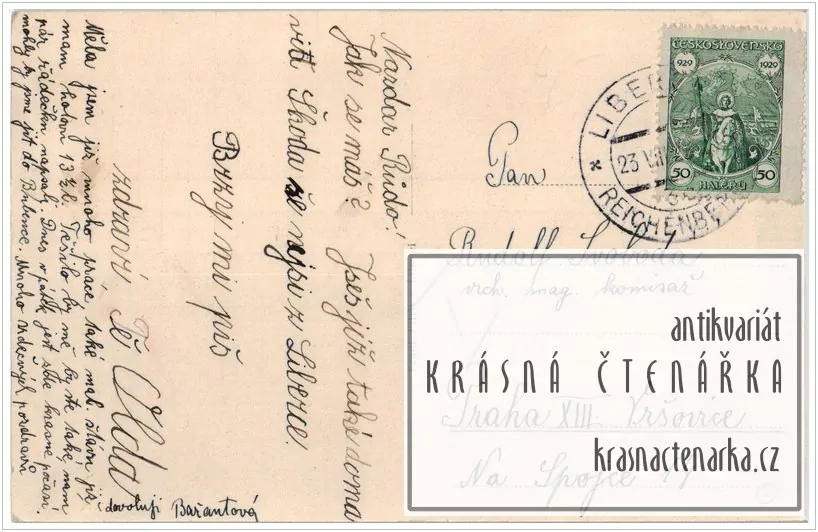 Nazdar Růdo!
Jak se máš? Jseš již také doma
viď. Škoda že nejsi z Liberce.
Brzy mi piš
zdraví Tě Olda
Měla jsem již mnoho práce, také mal. stání již
mám hotovi 13 Těšilo by mě by ste také nám
pár řádečku napsali. Dnes v pátek jest zde krásne počasí
mohly by jsme jít do Bubence. Mnoho srdečných pozdravů
dovoluji Bažantová
ČESKOSLOVENSKO
929 1929
50 HALÉŘŮ 50
LIBER
23 VII
REICHENBERG
Pan
Rudolf Svoboda
vrch. mag. komisař
Praha XIII Vršovice
Na Spojce
antikvariát
KRÁSNÁ ČTENÁŘKA
krasnactenarka.cz